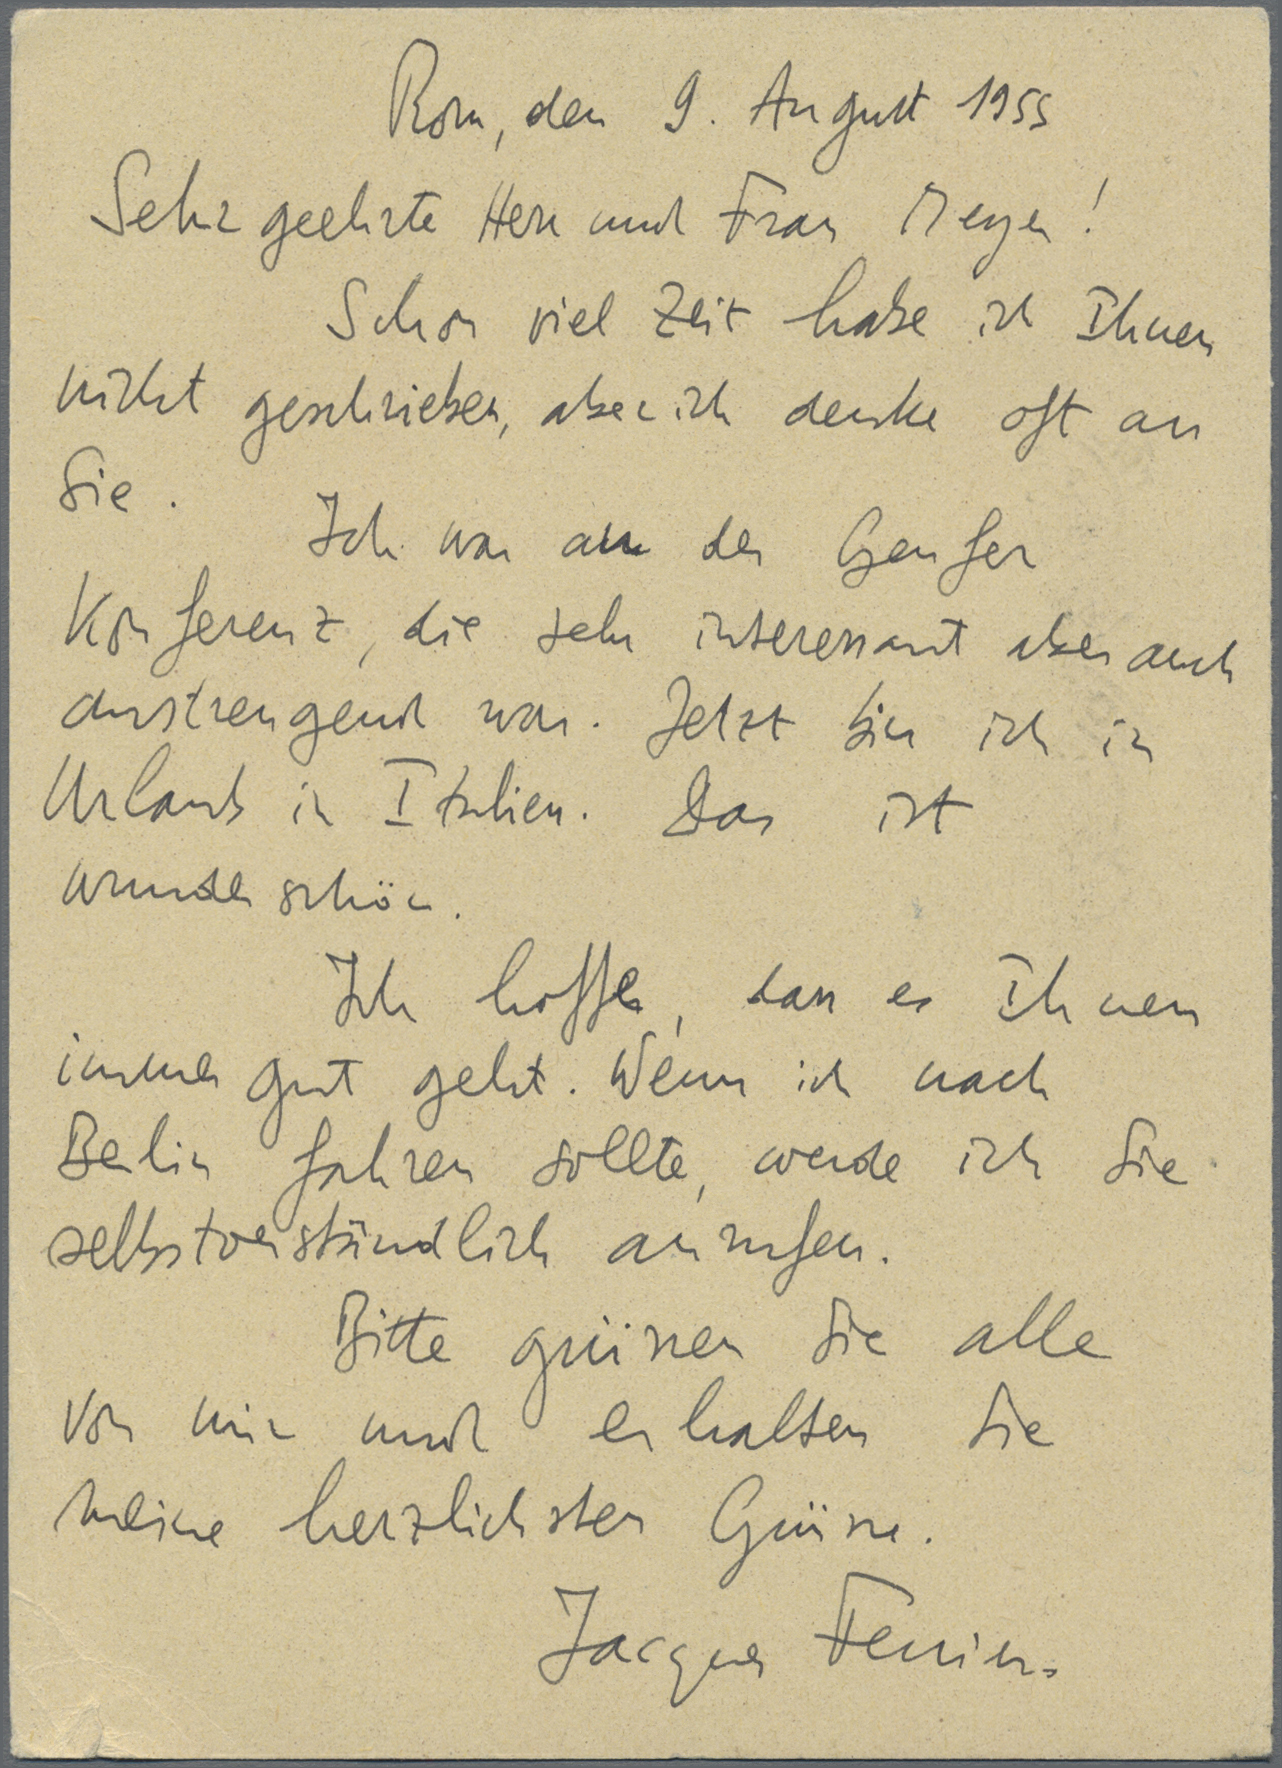 Rom, den 9. August 1955
Sehr geehrte Herr und Frau Meyer!
Schon viel Zeit habe ich Ihnen
nicht geschrieben, aber ich denke oft an
Sie.
Ich war an der Genfer
Konferenz, die sehr interessant aber auch
anstrengend war. Jetzt bin ich in
Urlaub in Italien. Das ist
wunderschön.
Ich hoffe, dass es Ihnen
immer gut geht. Wenn ich nach
Berlin fahren sollte, werde ich Sie
selbstverständlich anrufen.
Bitte grüssen Sie alle
von mir und erhalten Sie
meine herzlichsten Grüsse.
Jacques